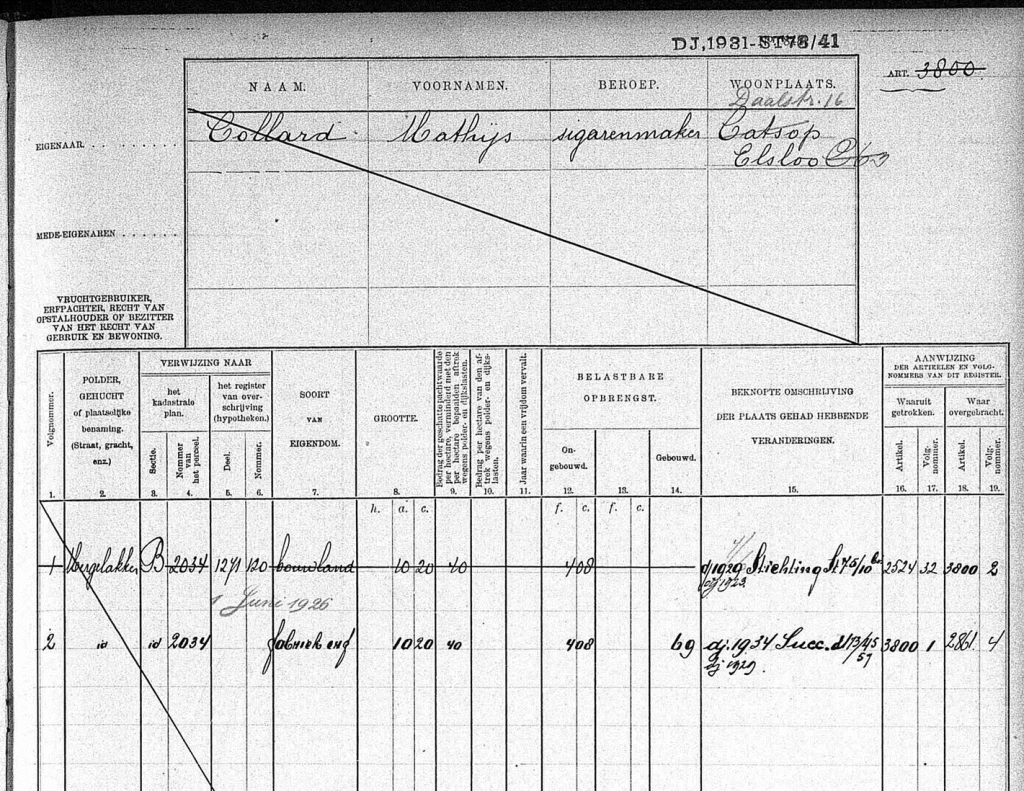 DJ,1931-ST78/41
ART. 3800.
NAAM. VOORNAMEN. BEROEP. WOONPLAATS.
Daalstr. 16
EIGENAAR. Collard Mathijs sigarenmaker Catsop
Elsloo
MEDE-EIGENAREN
VRUCHTGEBRUIKER,
ERFPACHTER, RECHT VAN
OPSTALHOUDER OF BEZITTER
VAN HET RECHT VAN
GEBRUIK EN BEWONING.
Volgnommer.
POLDER,
GEHUCHT
of plaatselijke
benaming.
(Straat, gracht,
enz.)
VERWIJZING NAAR
het
kadastrale
plan.
Sectie.
Nommer
van
het perceel.
het register
van over-
schrijving
(hypotheken.)
Deel.
Nommer.
SOORT
VAN
EIGENDOM.
GROOTTE.
Bedrag der geschatte pachtwaarde
per hectare, verminderd met den
per hectare bepaalden aftrek
wegens polder- en dijkslasten.
Bedrag per hectare van den af-
trek wegens polder- en dijks-
lasten.
Jaar waarin een vrijdom vervalt.
BELASTBARE
OPBRENGST.
On-
gebouwd.
Gebouwd.
BEKNOPTE OMSCHRIJVING
DER PLAATS GEHAD HEBBENDE
VERANDERINGEN.
AANWIJZING
DER ARTIKELEN EN VOLG-
NOMMERS VAN DIT REGISTER.
Waaruit
getrokken.
Artikel.
Volg-
nommer.
Waar
overgebracht.
Artikel.
Volg-
nommer.
1. 2. 3. 4. 5. 6. 7. 8. 9. 10. 11. 12. 13. 14. 15. 16. 17. 18. 19.
h. a. c. f. c. f. c.
1 B 2034 1271 120 bouwland 10 20 40 408 dj1929 Stichting 2524 32 3800 2
1 Juni 1926
2 id id 2034 fabriek enz 10 20 40 408 69 dj. 1934 Succ. 3800 1 2861 4
dj 1929.